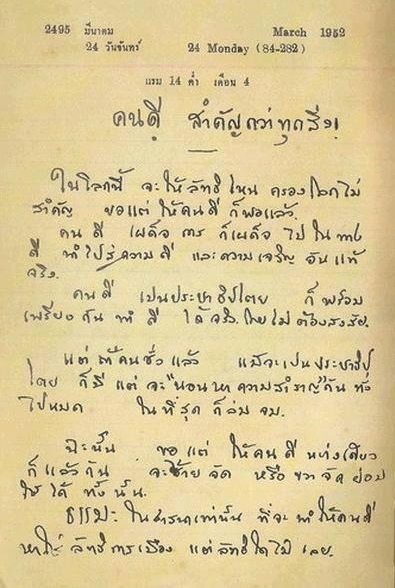 2495 มีนาคม March 1952
24 วันจันทร์ 24 Monday (84-282)
แรม 14 ค่ำ เดือน 4
คนดี สำคัญกว่าทุกสิ่ง!
ในโลกนี้ จะให้ลัทธิไหน ครองโลกไม่
สำคัญ ขอแต่ให้คนดี ก็พอแล้ว.
คนดี เผด็จการ ก็เผด็จ ไปในทาง
ดี ทำไปสู่ความดี และความเจริญ อันแท้
จริง.
คนดี เป็นประชาธิปไตย ก็พร้อม
เพรียงกัน ทำดี ได้จริง โดยไม่ต้องสงสัย.
แต่ถ้าคนชั่วแล้ว แม้จะเป็นประชาธิป
ไตย ก็มีแต่จะ "นอนหาความสำราญ" กันทั้ง
ไปหมด ในที่สุด ก็ล่มจม.
ฉะนั้น ขอแต่ให้คนดี อย่างเดียว
ก็แล้วกัน จะซ้ายจัด หรือขวาจัด ย่อม
ใช้ได้ ทั้งนั้น.
ธรรมะ ในศาสนาเท่านั้น ที่จะทำให้คนดี
หาใช่ ลัทธิการเมือง แต่ลัทธิใดไม่ เลย.